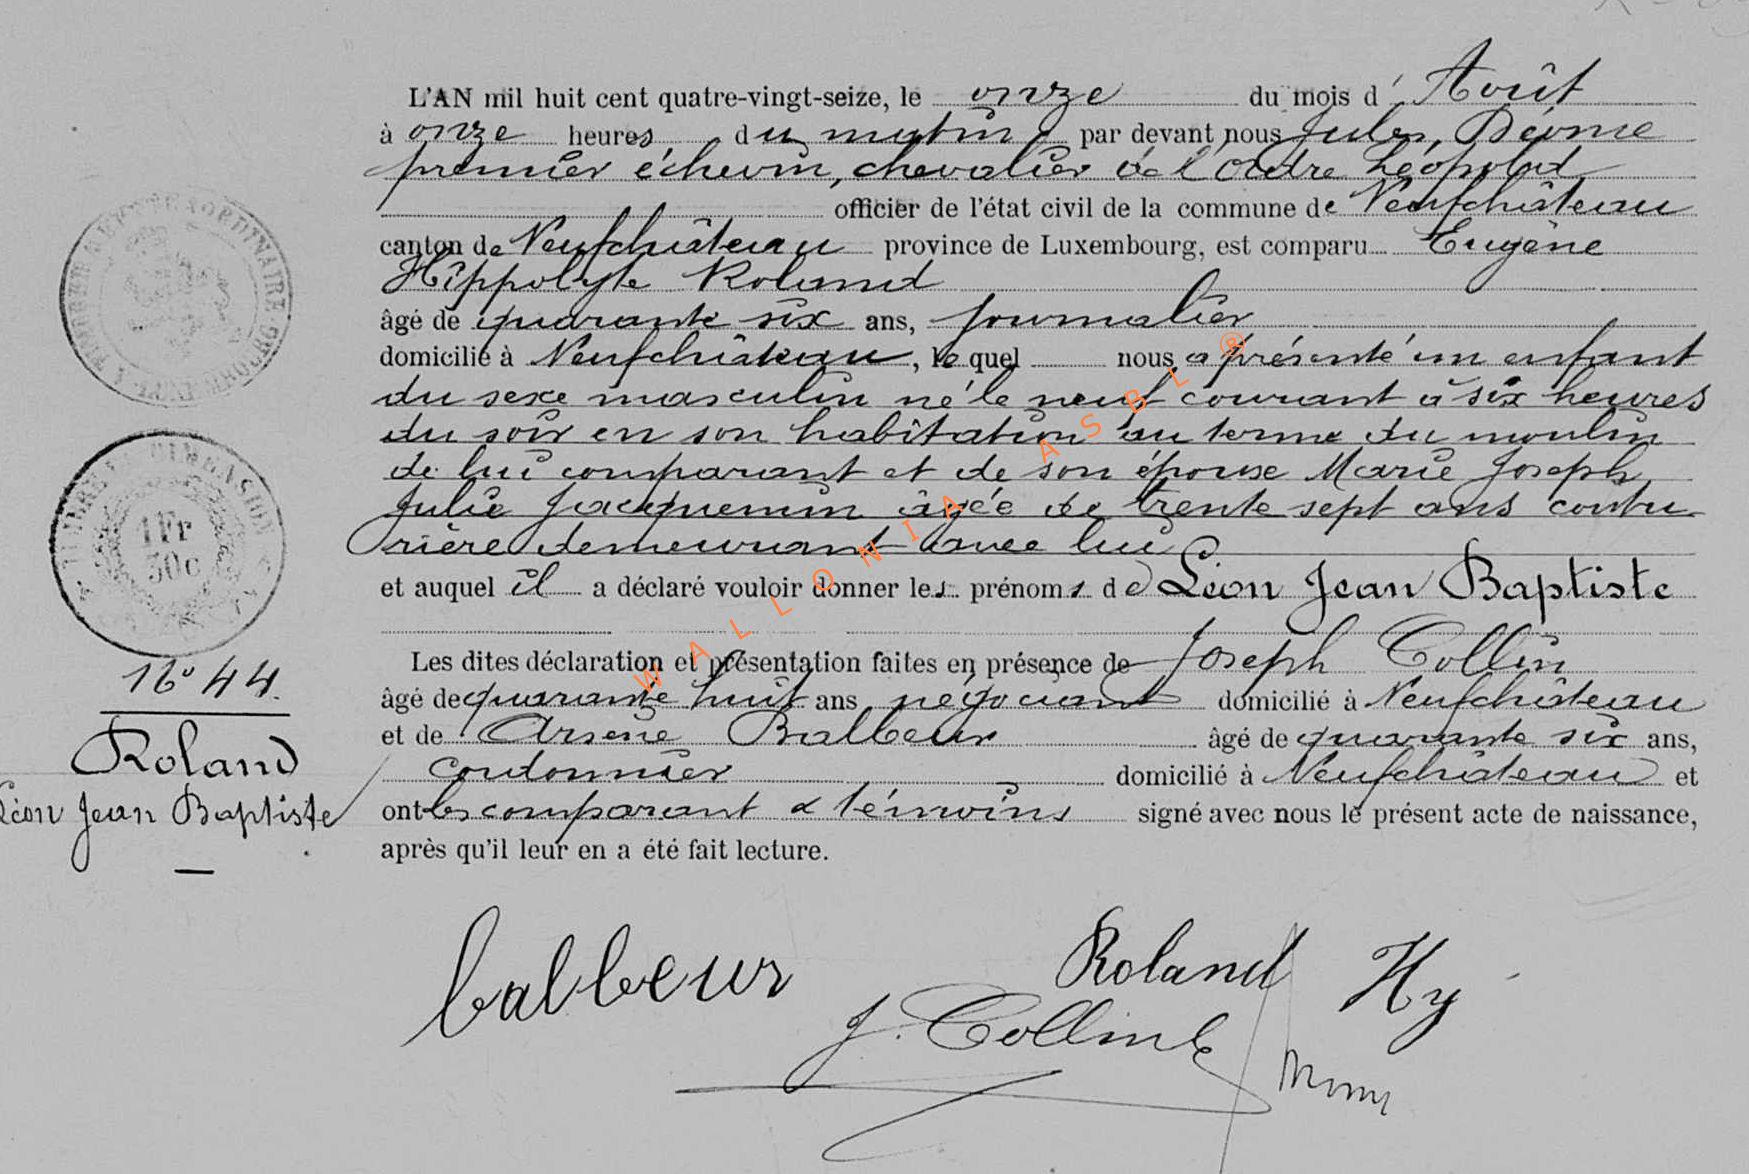 L'AN mil huit cent quatre-vingt-seize, le onze du mois d' Août
à onze heures du matin, par devant nous Jules,
premier échevin, chevalier de l'Ordre Léopold
officier de l'état civil de la commune de Neufchâteau
canton de Neufchâteau province de Luxembourg, est comparu Eugène
Hippolyte Roland
âgé de quarante six ans, journalier
domicilié à Neufchâteau, lequel nous a présenté un enfant
du sexe masculin né le neuf courant à six heures
du soir en son habitation au terme du moulin
de lui comparant et de son épouse Marie Joseph
Julie Jacquemin âgée de trente sept ans coutu
rière demeurant avec lui
et auquel il a déclaré vouloir donner les prénoms de Léon Jean Baptiste
Les dites déclaration et présentation faites en présence de Joseph Collin
âgé de quarante huit ans négociant domicilié à Neufchâteau
et de Arsène Balbeur âgé de quarante six ans,
cordonnier domicilié à Neufchâteau et
ont les comparant & témoins signé avec nous le présent acte de naissance,
après qu'il leur en a été fait lecture.
TIMBRE DE DIMENSION
1 Fr
30 c
No 44.
Roland
Léon Jean Baptiste
balbeur
Roland Hy
J. Collin
WALLONIA ASBL ®